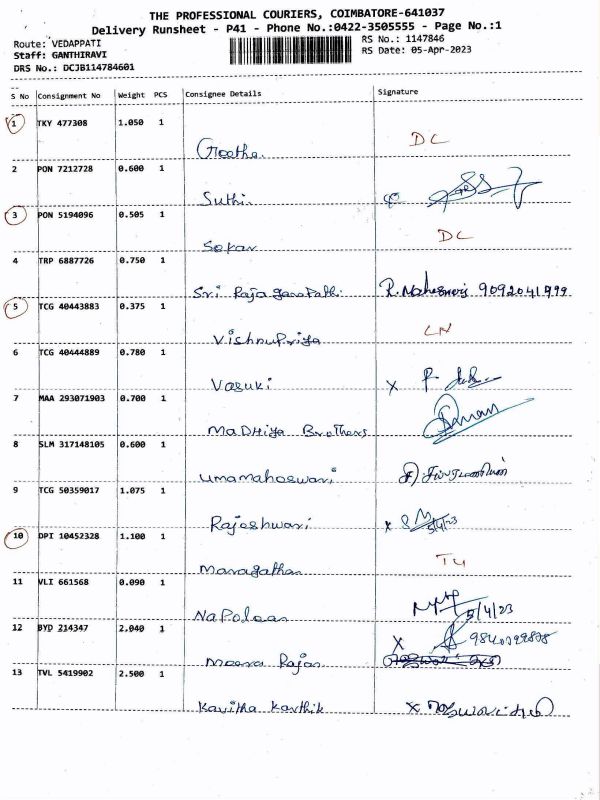 THE PROFESSIONAL COURIERS, COIMBATORE-641037
Delivery Runsheet - P41 - Phone No.:0422-3505555 - Page No.:1
Route: VEDAPPATI RS No.: 1147846
Staff: GANTHIRAVI RS Date: 05-Apr-2023
DRS No.: DCJB114784601
S No Consignment No Weight PCS Consignee Details Signature
1 TKY 477308 1.050 1
Geetha DC
2 PON 7212728 0.600 1
Suthi
3 PON 5194096 0.505 1
Sekar DC
4 TRP 6887726 0.750 1
Sri Rajaganapathi R. Maheswari 9092041999
5 TCG 40443883 0.375 1
VishnuPriya LN
6 TCG 40444889 0.780 1
Vasuki x
7 MAA 293071903 0.700 1
Madhiya Brothers
8 SLM 317148105 0.600 1
umamaheswari
9 TCG 50359017 1.075 1
Rajeshwari x 5/4/23
10 DPI 10452328 1.100 1
Maragatham
11 VLI 661568 0.090 1
Napolean 5/4/23
12 BYD 214347 2.040 1
Meera Rajan X
13 TVL 5419902 2.500 1
Kavitha Karthik x